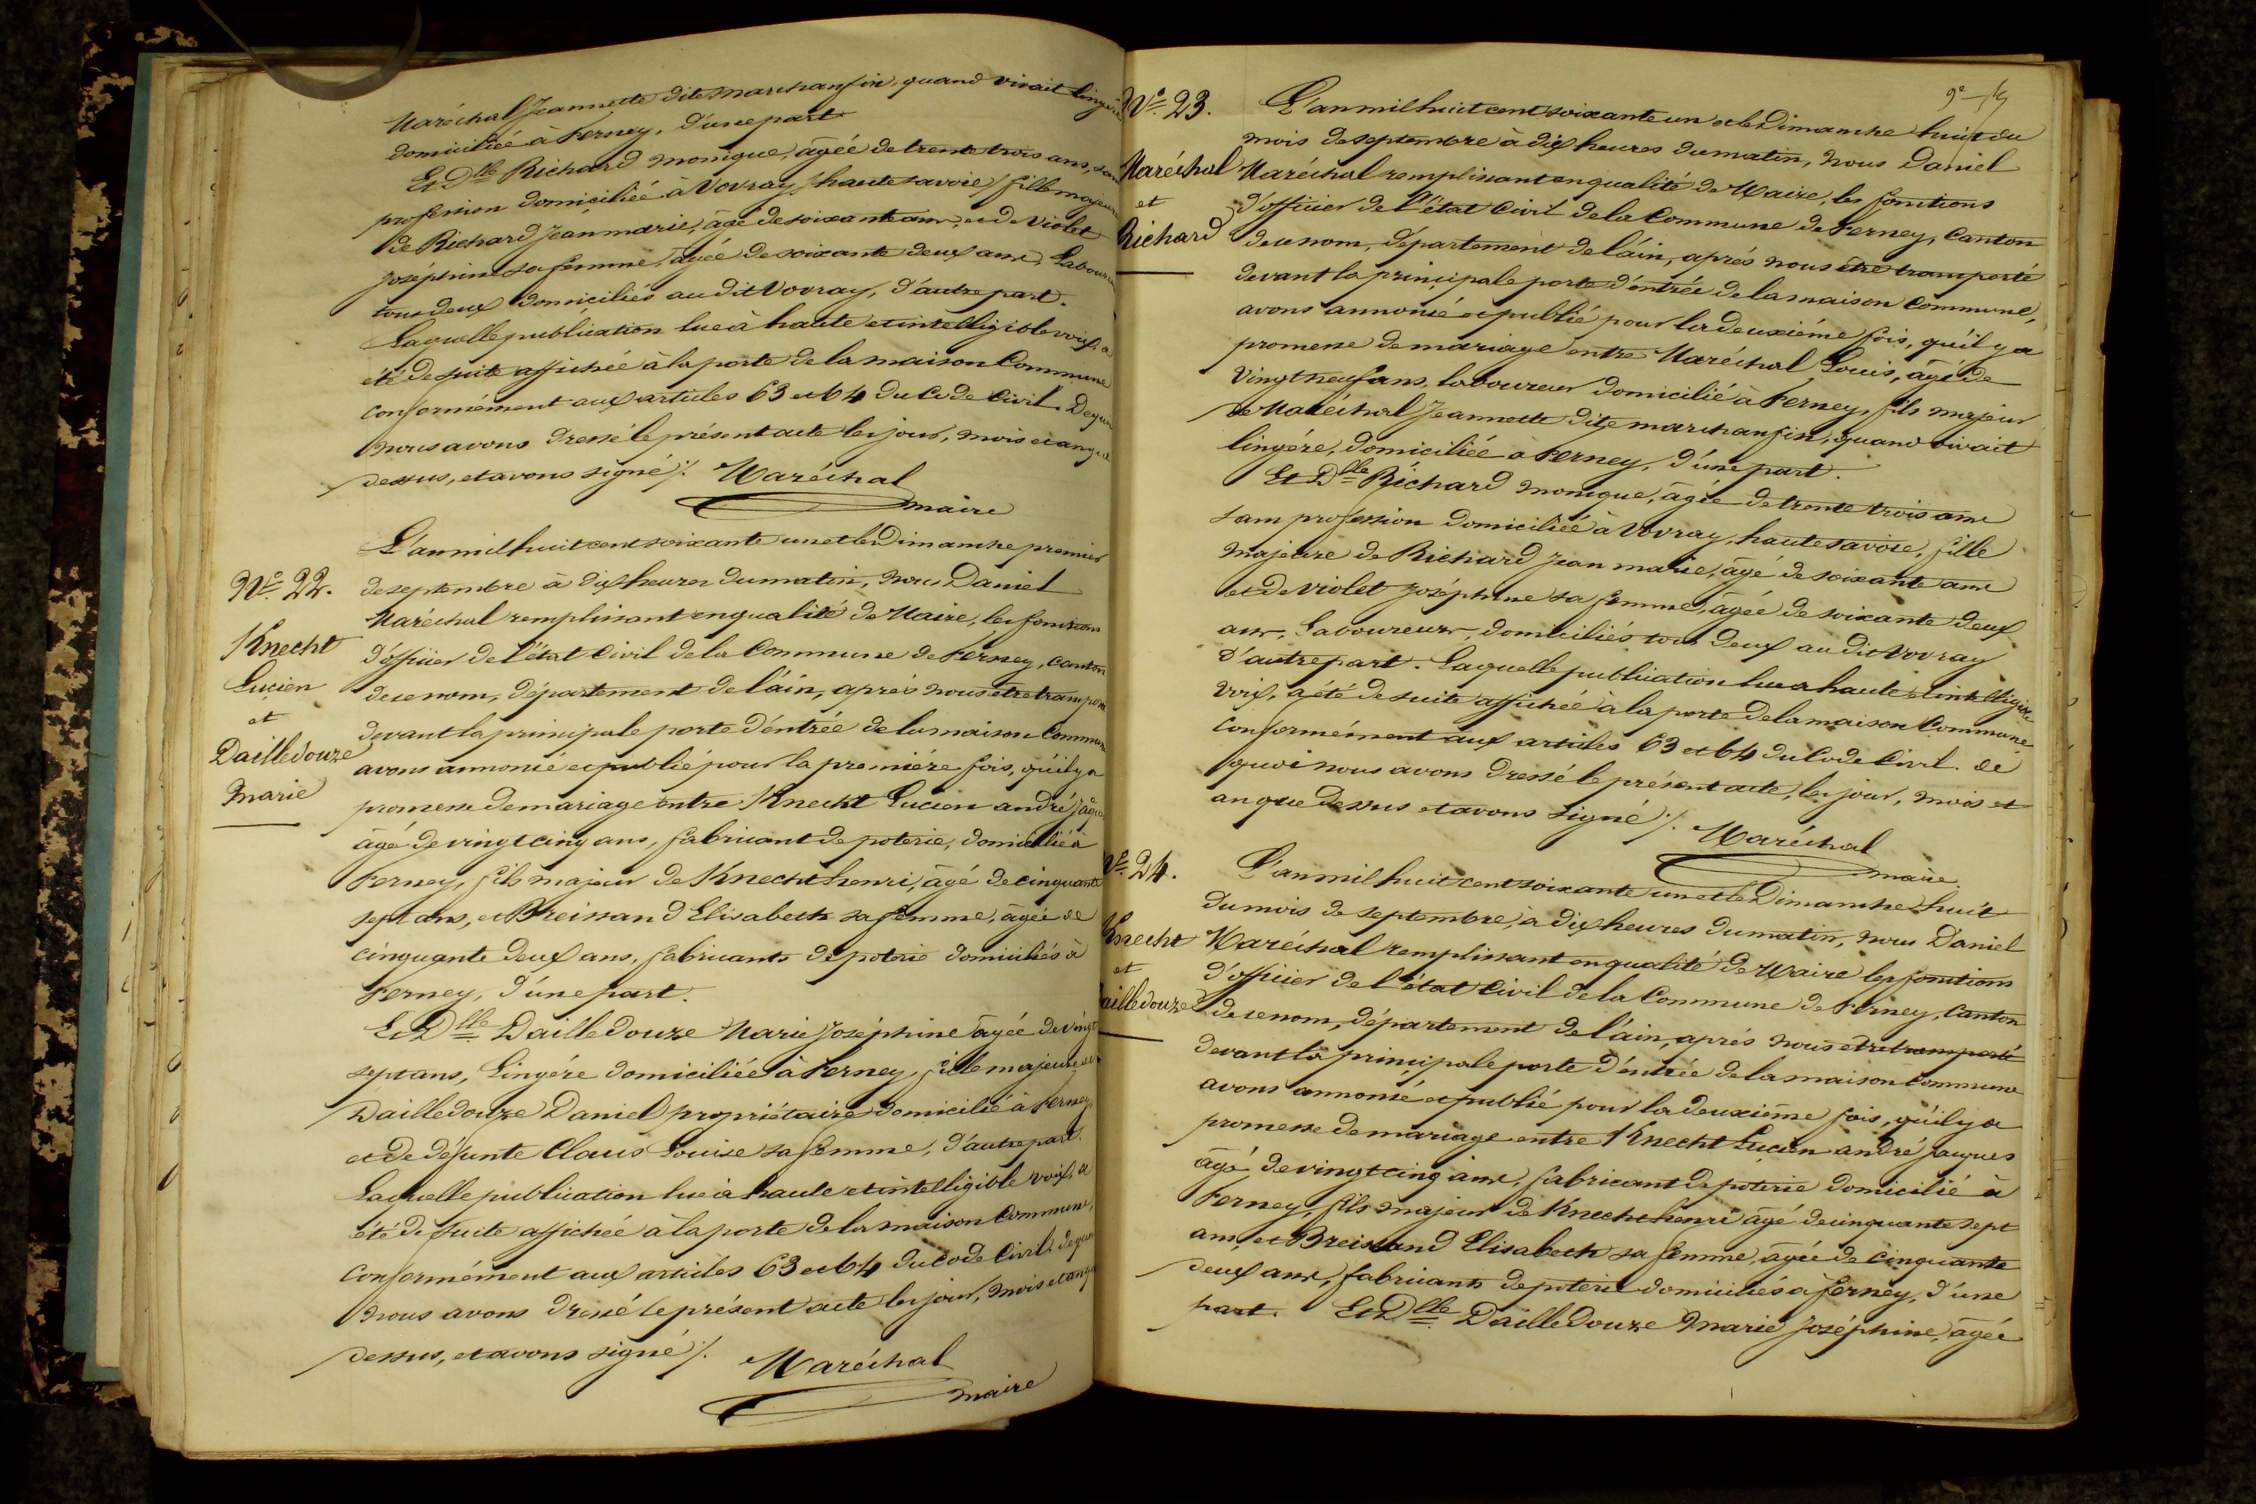 Maréchal Jeannette dite marchanfin, quand vivait lingère
domiciliée à Ferney, d'une part.
Et Dlle Richard monique, âgée de trente trois ans, sans
profession domiciliée à Vovray, haute savoie, fille majeure
de Richard Jean marie, âgé de soixante ans, et de Violet
Joséphine sa femme, âgée de soixante deux ans,
tous deux domiciliés au dit Vovray, d'autre part.
Laquelle publication lue à haute et intelligible voix, a
été de suite affichée à la porte de la maison Commune
conformément aux articles 63 et 64 du Code Civil. De quoi
nous avons dressé le présent acte les jour, mois et an que
dessus, et avons signé ./. Maréchal
maire
No. 22.
Knecht
Lucien
et
Dailledouze
Marie
L'an mil huit cent soixante un et le Dimanche premier
de septembre à dix heures du matin, nous Daniel
Maréchal remplissant en qualité de Maire, les fonctions
d'officier de l'état Civil de la Commune de Ferney, canton
de ce nom, département de l'ain, après nous être transporté
devant la principale porte d'entrée de la maison Commune
avons annoncé et publié pour la première fois, qu'il y a
promesse de mariage entre Knecht Lucien andré Jaques
âgé de vingt cinq ans, fabricant de poterie, domicilié à
Ferney, fils majeur de Knecht henri, âgé de cinquante
sept ans, et Breissand Elisabeth sa femme, âgée de
cinquante deux ans, fabricants de poterie domiciliés à
Ferney, d'une part.
Et Dlle Dailledouze Marie Joséphine âgée de vingt
sept ans, Lingère domiciliée à Ferney, fille majeure de
Dailledouze Daniel propriétaire domicilié à Ferney
et de défunte Claus Louise sa femme, d'autre part.
Laquelle publication lue à haute et intelligible voix, a
été de suite affichée à la porte de la maison Commune,
conformément aux articles 63 et 64 du Code Civil. de quoi
nous avons dressé le présent acte les jour, mois et an que
dessus, et avons signé ./. Maréchal
maire
No. 23.
Maréchal
et
Richard
L'an mil huit cent soixante un et le Dimanche huit du
mois de septembre à dix heures du matin, nous Daniel
Maréchal remplissant en qualité de Maire, les fonctions
d'officier de l'état Civil de la Commune de Ferney, Canton
de ce nom, département de l'ain, après nous être transporté
devant la principale porte d'entrée de la maison Commune,
avons annoncé et publié pour la deuxième fois, qu'il y a
promesse de mariage entre Maréchal Louis, âgé de
Vingt neuf ans, laboureur domicilié à Ferney, fils majeur
de Maréchal Jeannette dite marchanfin, quand vivait
lingère, domiciliée à Ferney, d'une part.
Et Dlle Richard monique, âgée de trente trois ans
sans profession domiciliée à Vovray, haute savoie, fille
majeure de Richard Jean marie, âgé de soixante ans
et de Violet Joséphine sa femme, âgée de soixante deux
ans, Laboureurs, domiciliés tous deux au dit Vovray
d'autre part. Laquelle publication lue a haute et intelligible
voix, a été de suite affichée à la porte de la maison Commune
conformément aux articles 63 et 64 du Code Civil. de
quoi nous avons dressé le présent acte, les jour, mois et
an que dessus et avons signé ./. Maréchal
maire.
No. 24.
Knecht
et
Dailledouze
L'an mil huit cent soixante un et le Dimanche huit
du mois de septembre, à dix heures du matin, nous Daniel
Maréchal remplissant en qualité de Maire les fonctions
d'officier de l'état Civil de la Commune de Ferney, Canton
de ce nom, département de l'ain, après nous être transporté
devant la principale porte d'entrée de la maison Commune
avons annoncé et publié pour la deuxième fois, qu'il y a
promesse de mariage entre Knecht Lucien andré Jaques
âgé de vingt cinq ans, fabricant de poterie domicilié à
Ferney, fils majeur de Knecht henri âgé de cinquante sept
ans, et Breissand Elisabeth sa femme, âgée de cinquante
deux ans, fabricants de poterie domiciliés à ferney, d'une
part. Et Dlle Dailledouze Marie Joséphine, âgée